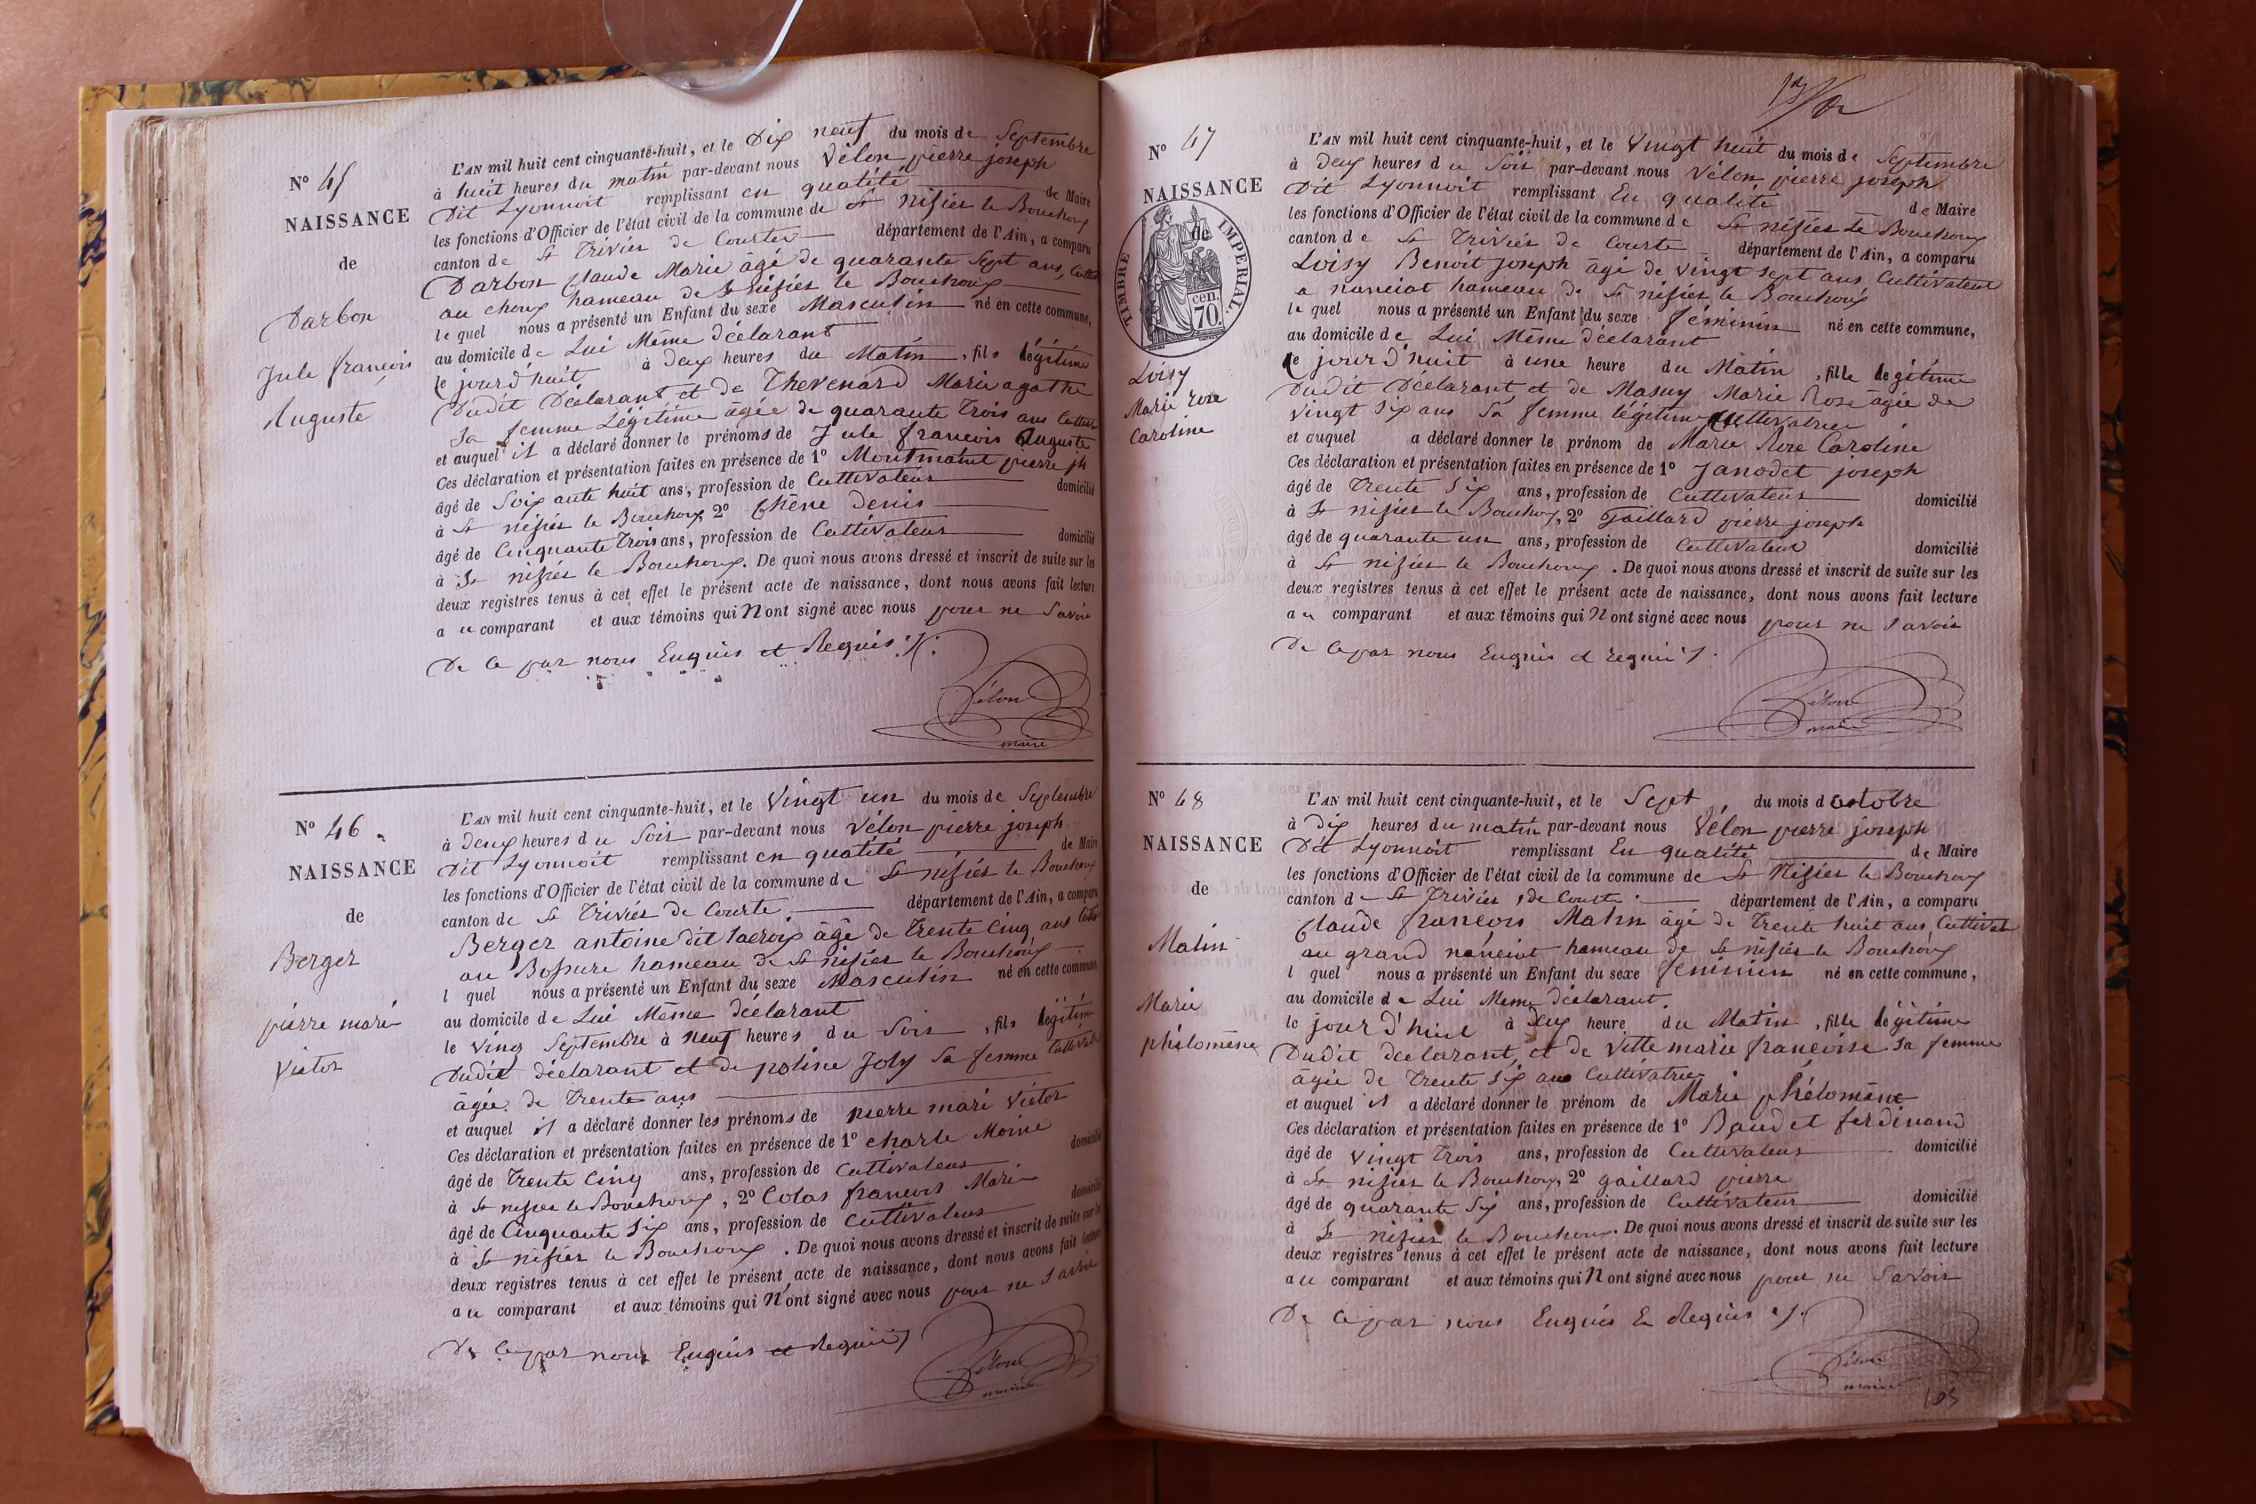 N° 45
NAISSANCE
de
Darbon
Jule françois
Auguste
L'AN mil huit cent cinquante-huit, et le Dix neuf du mois de Septembre
à huit heures du matin par-devant nous Vélon pierre joseph
Dit Lyonnoit remplissant en qualité de Maire
les fonctions d'Officier de l'état civil de la commune de St nisiés le Bouchoux
canton de St Triviés de Courtes département de l'Ain, a comparu
Darbon Claude Marie âgé de quarante Sept ans,
au choux hameau de St nisiés le Bouchoux
le quel nous a présenté un Enfant du sexe Masculin né en cette commune,
au domicile de Lui Même déclarant
le jourd'huit à deux heures du Matin, fils légitime
Dudit Déclarant et de Thevenard Marie agathe
Sa femme Légitime âgée de quarante Trois ans
et auquel il a déclaré donner le prénoms de Jule francois Auguste
Ces déclaration et présentation faites en présence de 1° pierre jh
âgé de Soixante huit ans, profession de Cultivateur domicilié
à St nisiés le Bouchoux 2° Chêne Denis
âgé de Cinquante Trois ans, profession de Cultivateur domicilié
à St nisiés le Bouchoux. De quoi nous avons dressé et inscrit de suite sur les
deux registres tenus à cet effet le présent acte de naissance, dont nous avons fait lecture
au comparant et aux témoins qui N ont signé avec nous pour ne Savoir
De ce par nous Enquis et Requis ./.
Vélon
maire
N° 46
NAISSANCE
de
Berger
pierre mari
Victor
L'AN mil huit cent cinquante-huit, et le Vingt un du mois de Septembre
à deux heures du Soir par-devant nous Vélon pierre joseph
Dit Lyonnoit remplissant en qualité de Maire
les fonctions d'Officier de l'état civil de la commune de St nisiés le Bouchoux
canton de St Triviés de Courte département de l'Ain, a comparu
Berger antoine dit Lacroix âgé de Trente Cinq ans
au Bossure hameau de St nisiés le Bouchoux
l quel nous a présenté un Enfant du sexe Masculin né en cette commune
au domicile de Lui Même déclarant
le Ving Septembre à neuf heures du Soir, fils légitime
Dudit déclarant et de poline Joly Sa femme
âgée de Trente ans
et auquel il a déclaré donner les prénoms de pierre mari Victor
Ces déclaration et présentation faites en présence de 1° Charle Moine
âgé de Trente Cinq ans, profession de Cultivateur domicilié
à St nisiés le Bouchoux, 2° Colas francois Marie
âgé de Cinquante Six ans, profession de Cultivateur domicilié
à St nisiés le Bouchoux. De quoi nous avons dressé et inscrit de suite sur les
deux registres tenus à cet effet le présent acte de naissance, dont nous avons fait lecture
au comparant et aux témoins qui N ont signé avec nous pour ne Savoir
De ce par nous Enquis et Requis ./.
Vélon
maire
N° 47
NAISSANCE
de
TIMBRE IMPERIAL.
70 cen.
Loisy
Marie roze
Caroline
L'AN mil huit cent cinquante-huit, et le Vingt huit du mois de Septembre
à deux heures du Soir par-devant nous Vélon pierre joseph
Dit Lyonnoit remplissant En qualité de Maire
les fonctions d'Officier de l'état civil de la commune de St nisiés le Bouchoux
canton de St Triviés de Courte département de l'Ain, a comparu
Loisy Benoit joseph âgé de Vingt Sept ans Cultivateur
a nanciat hameau de St nisiés le Bouchoux
le quel nous a présenté un Enfant du sexe féminin né en cette commune,
au domicile de Lui Même déclarant
le jour d'huit à une heure du Matin, fille légitime
Dudit Déclarant et de Masuy Marie Rose âgée de
Vingt Six ans Sa femme légitime Cultivatrice
et auquel a déclaré donner le prénom de Marie Roze Caroline
Ces déclaration et présentation faites en présence de 1° Janodet joseph
âgé de Trente Six ans, profession de Cultivateur domicilié
à St nisiés le Bouchoux, 2° Gaillard pierre joseph
âgé de quarante un ans, profession de Cultivateur domicilié
à St nisiés le Bouchoux. De quoi nous avons dressé et inscrit de suite sur les
deux registres tenus à cet effet le présent acte de naissance, dont nous avons fait lecture
au comparant et aux témoins qui N ont signé avec nous pour ne Savoir
De ce par nous Enquis et requis ./.
Vélon
maire
N° 48
NAISSANCE
de
Matin
Marie
phélomène
L'AN mil huit cent cinquante-huit, et le Sept du mois d octobre
à Dix heures du matin par-devant nous Vélon pierre joseph
Dit Lyonnoit remplissant En qualité de Maire
les fonctions d'Officier de l'état civil de la commune de St Nisiés le Bouchoux
canton de St Triviés de Courte département de l'Ain, a comparu
Claude francois Matin âgé de Trente huit ans, Cultivat
au grand nanciat hameau de St nisiés le Bouchoux
l quel nous a présenté un Enfant du sexe féminin né en cette commune,
au domicile de Lui Meme déclarant.
le jour d'huit à Deux heure du Matin, fille légitime
Dudit declarant, et de Vitte marie francoise Sa femme
âgée de Trente Six ans Cultivatrice
et auquel il a déclaré donner le prénom de Marie phélomène
Ces déclaration et présentation faites en présence de 1° Baudet ferdinand
âgé de Vingt Trois ans, profession de Cultivateur domicilié
à St nisiés le Bouchoux, 2° gaillard pierre
âgé de quarante Six ans, profession de Cultivateur domicilié
à St nisiés le Bouchoux. De quoi nous avons dressé et inscrit de suite sur les
deux registres tenus à cet effet le présent acte de naissance, dont nous avons fait lecture
au comparant et aux témoins qui N ont signé avec nous pour ne Savoir
De ce par nous Enquis Et Requis ./.
Vélon
maire
103